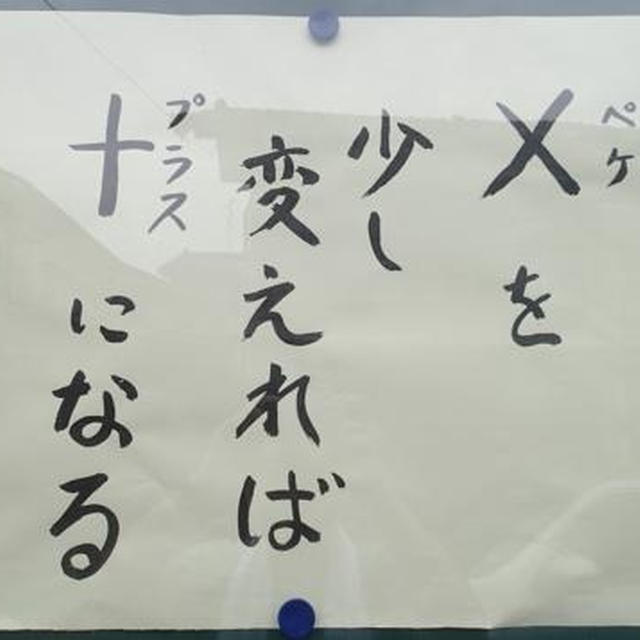 ×を
ペケ
少し
変えれば
十になる
プラス